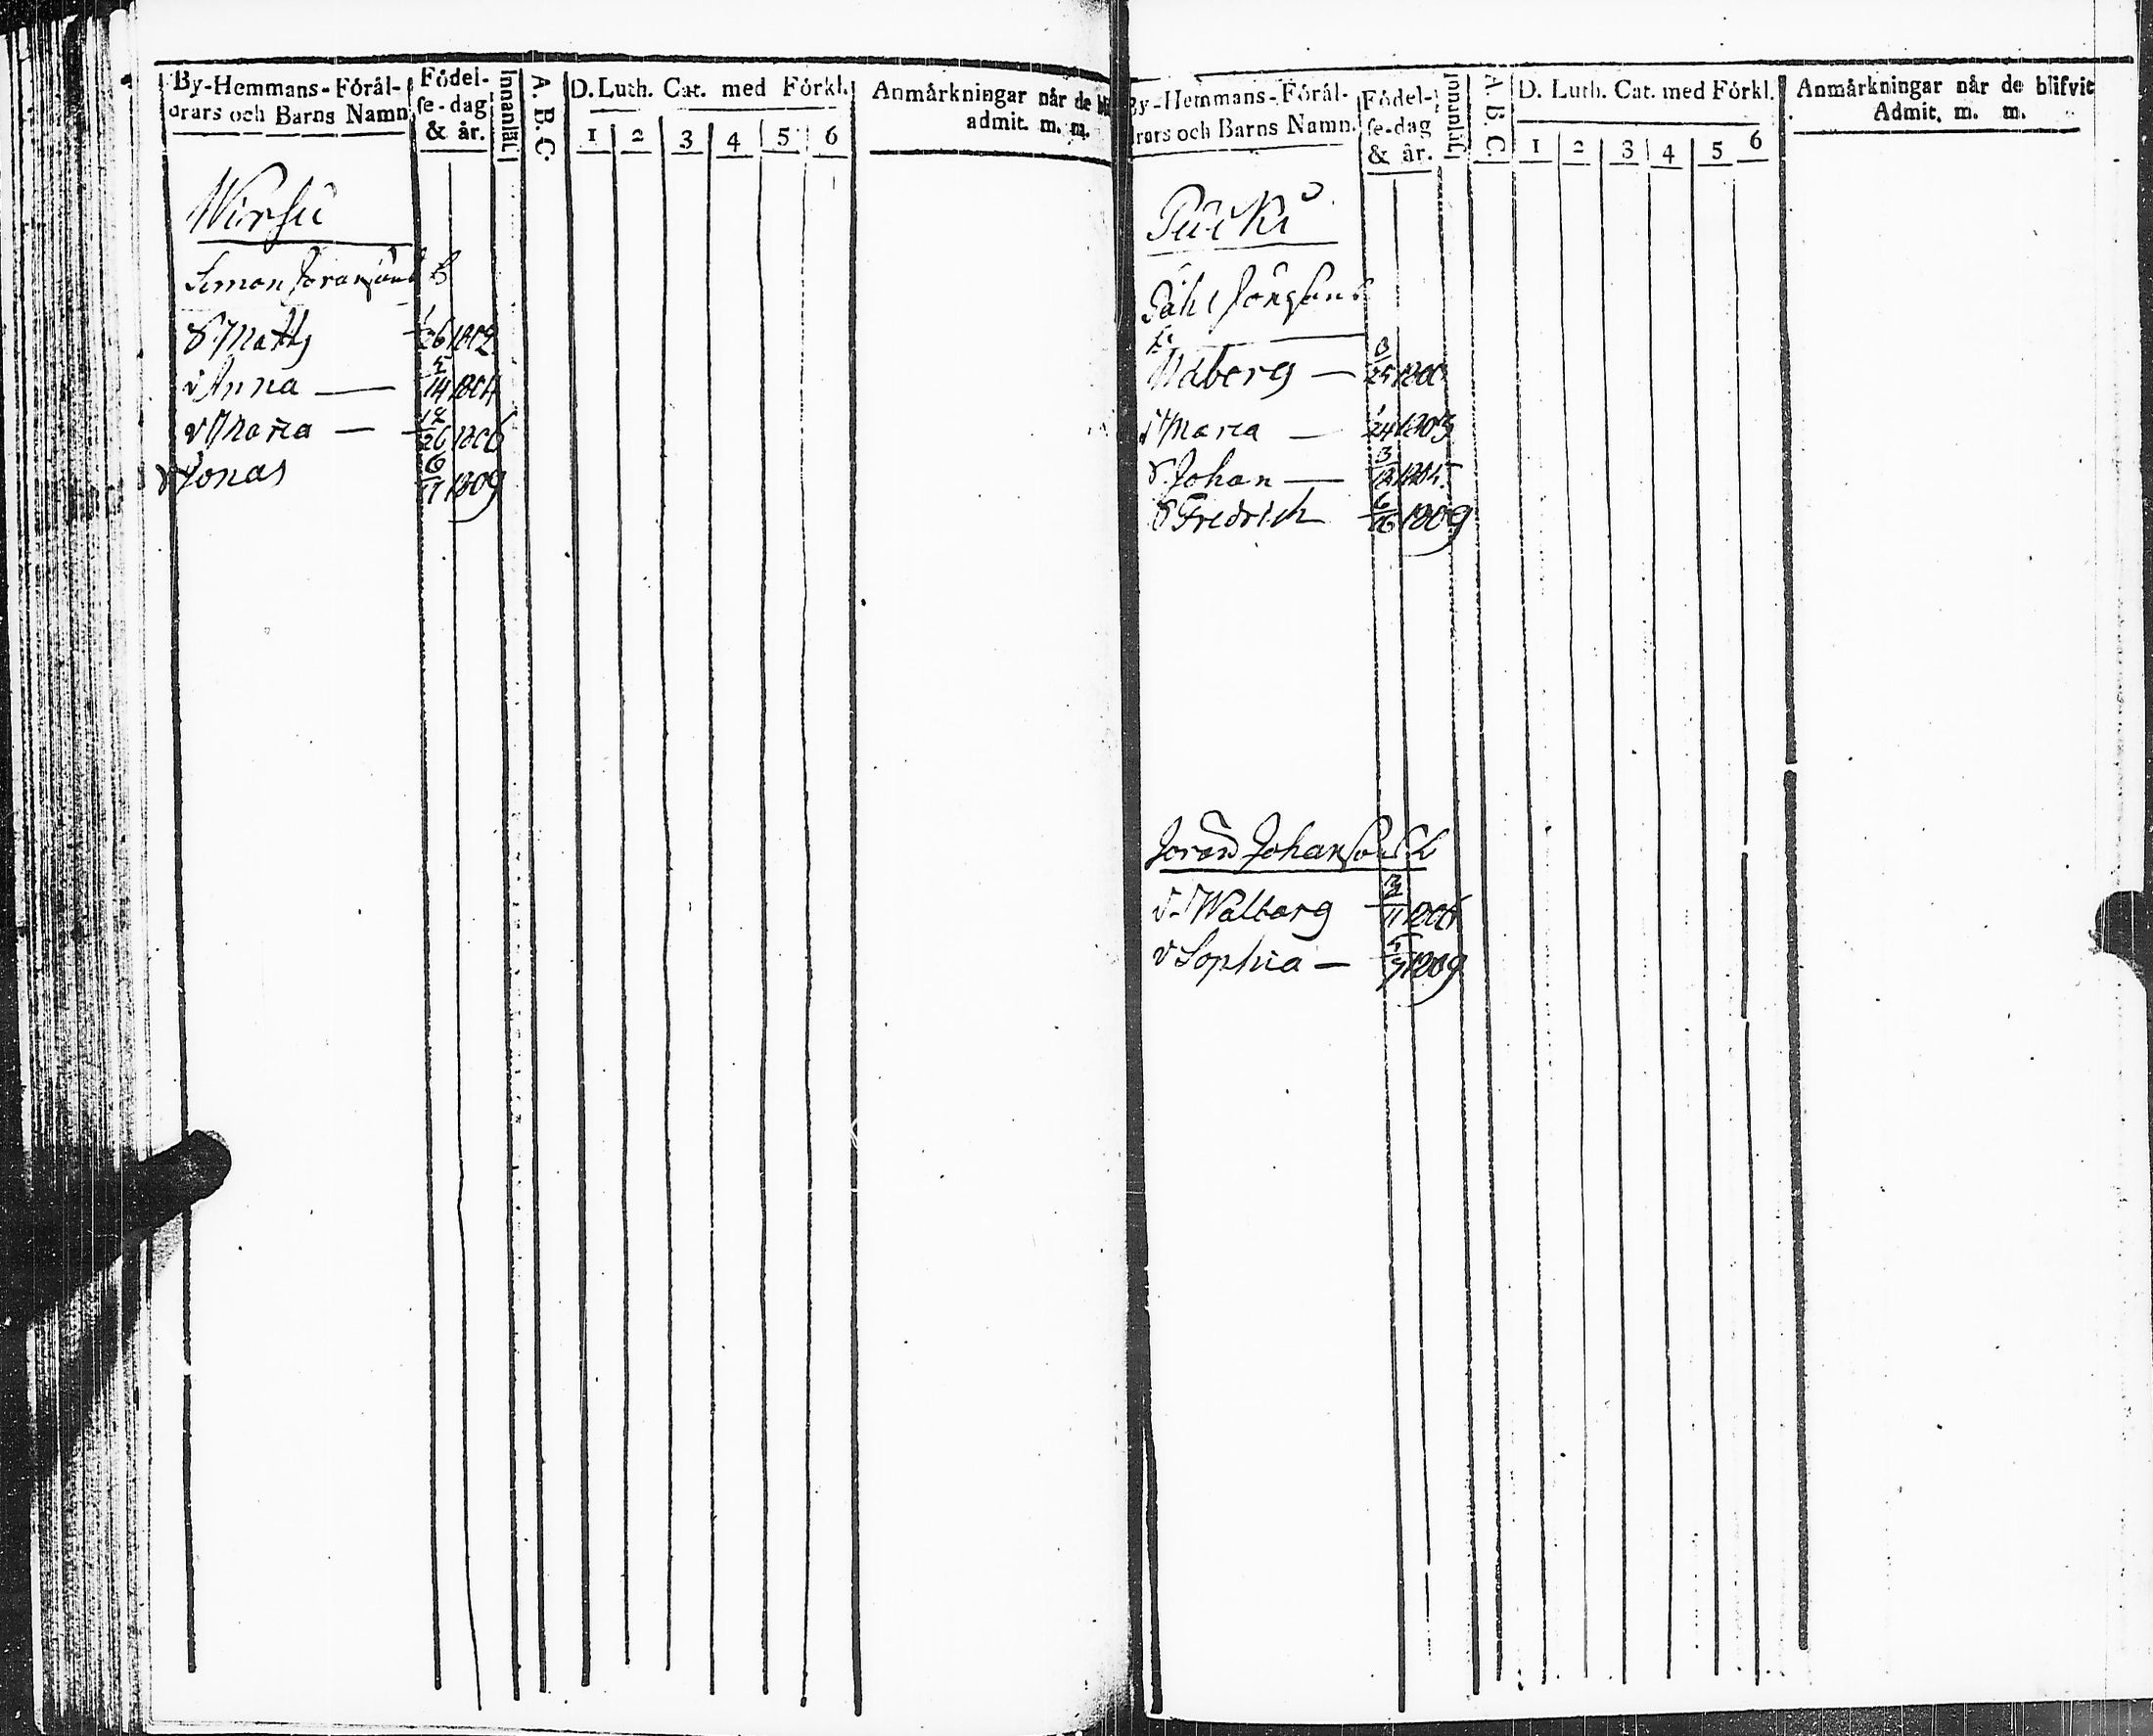 By-Hemmans-Förål-
drars och Barns Namn
Födel-
se-dag
& år.
Innanläs.
A. B. C.
D. Luth. Cat. med Förkl.
1 2 3 4 5 6
Anmärkningar når de
admit. m. m.
Wirsu
Simon Joransons B
S. Matts 1/26 1802
d Anna — 5/14 1804
d Maria — 12/26 1806
S Jonas 6/11 1809
By-Hemmans-Förål-
drars och Barns Namn.
Födel-
se-dag
& år.
Innanläs.
A. B. C.
D. Luth. Cat. med Förkl.
1 2 3 4 5 6
Anmärkningar når de blifvit
Admit. m. m.
Påhl
—
d Maria — 1/24 1803
S. Johan — 3/
S Fredrich 6/16 1809
Joran Johansons B
d. Walborg 1806
d Sophia — 5/ 1809